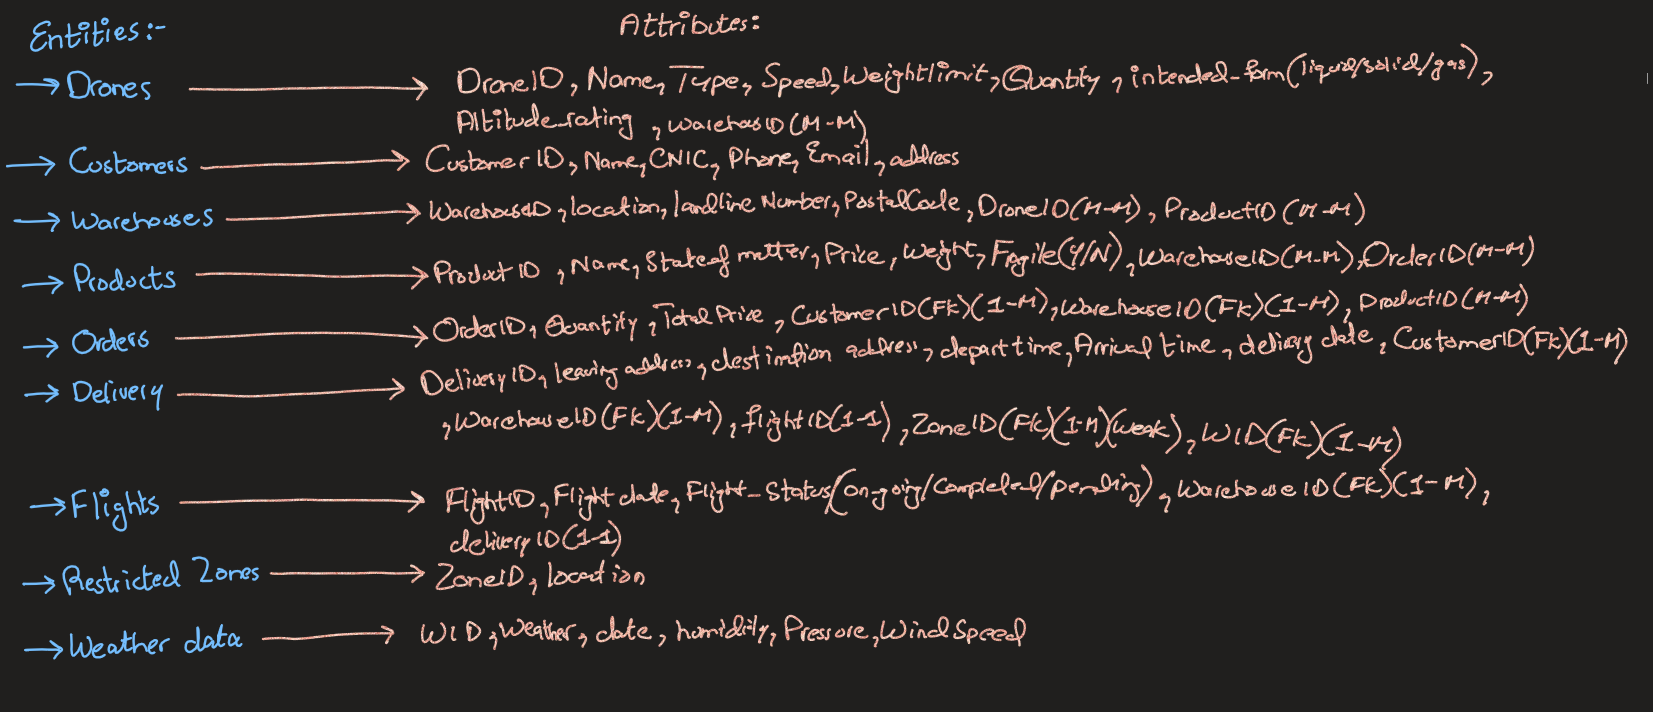 Entities:- Attributes:
→ Drones → DroneID, Name, Type, Speed, Weightlimit, Quantity, intended_form(liquid/solid/gas),
Altitude_rating, WarehosID(M-M)
→ Customers → CustomerID, Name, CNIC, Phone, Email, address
→ Warehouses → WarehouseID, location, landline Number, PostalCode, DroneID(M-M), ProductID(M-M)
→ Products → ProductID, Name, State of matter, Price, Weight, Fragile(Y/N), WarehouseID(M-M), OrderID(M-M)
→ Orders → OrderID, Quantity, Total Price, CustomerID(FK)(1-M), WarehouseID(FK)(1-M), ProductID(M-M)
→ Delivery → DeliveryID, leaving address, destination address, depart time, Arrival time, delivery date, CustomerID(FK)(1-M)
, WarehouseID(FK)(1-M), flightID(1-1), ZoneID(FK)(1-M)(weak), WID(FK)(1-M)
→ Flights → FlightID, Flight date, Flight_Status(ongoing/Completed/pending), WarehouseID(FK)(1-M),
deliveryID(1-1)
→ Restricted Zones → ZoneID, location
→ Weather data → WID, Weather, date, humidity, Pressure, WindSpeed